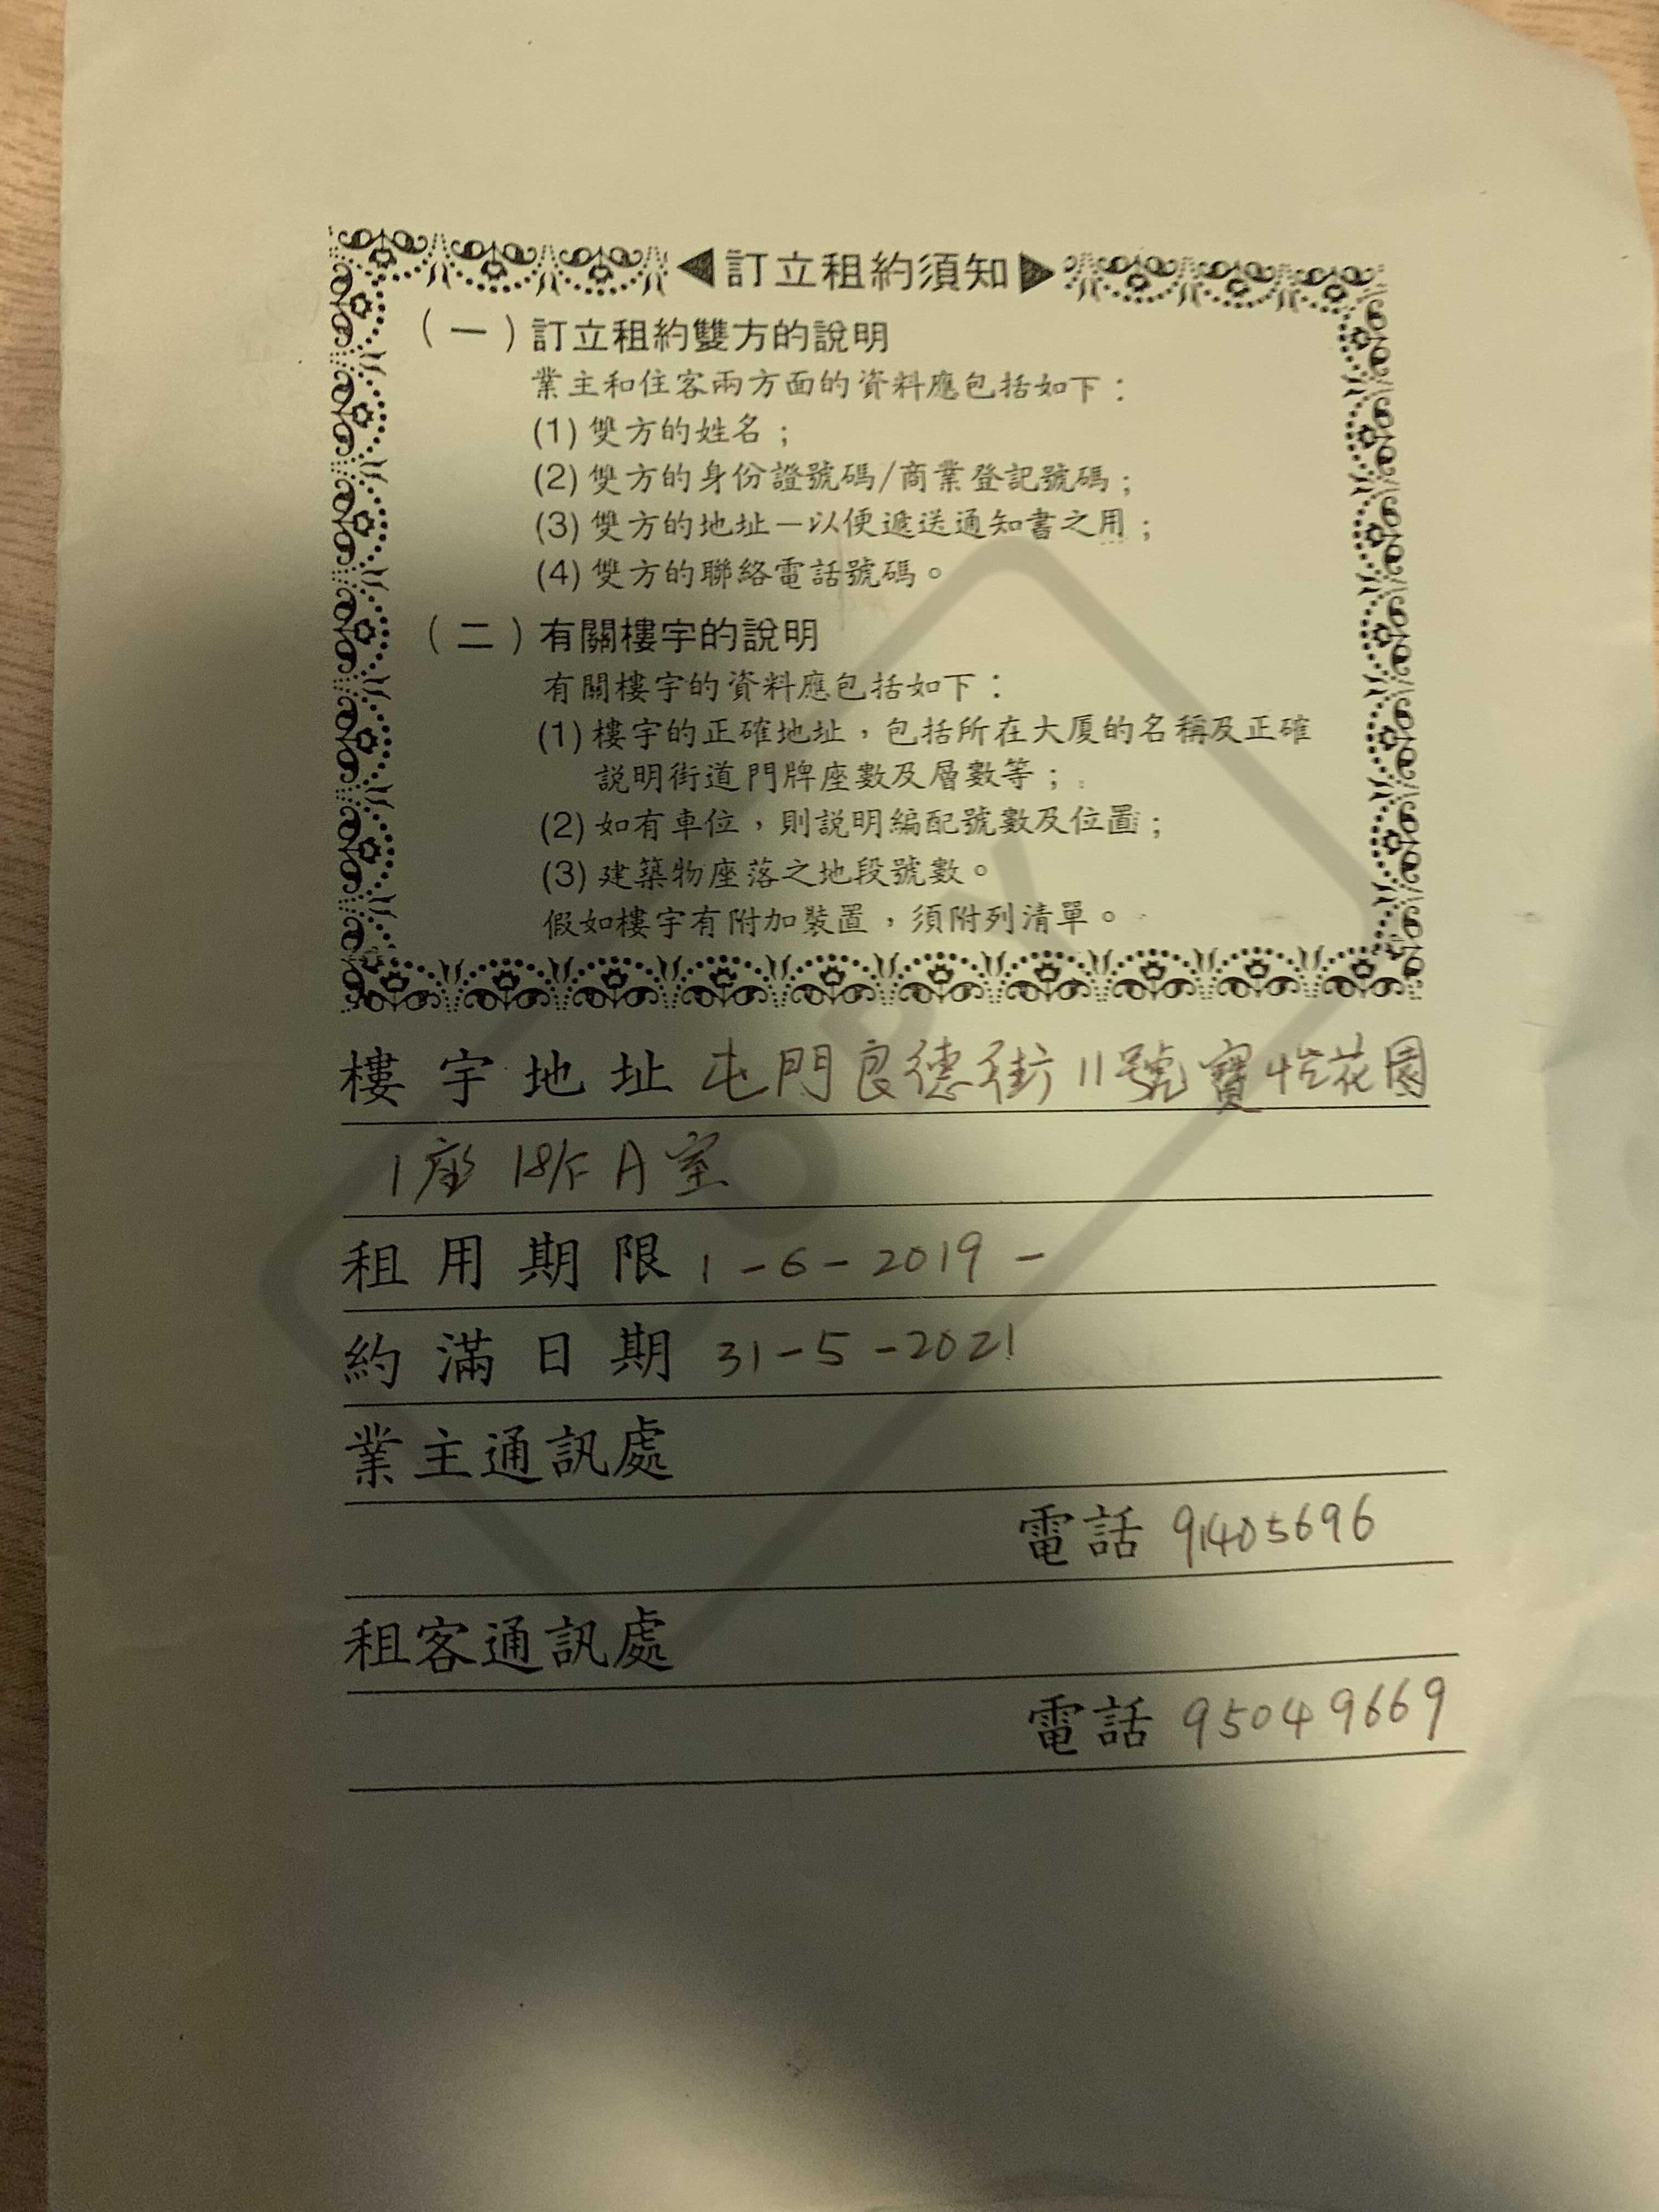 ◀訂立租約須知▶
（一）訂立租約雙方的說明
業主和住客兩方面的資料應包括如下：
(1) 雙方的姓名；
(2) 雙方的身份證號碼/商業登記號碼；
(3) 雙方的地址—以便遞送通知書之用；
(4) 雙方的聯絡電話號碼。
（二）有關樓宇的說明
有關樓宇的資料應包括如下：
(1) 樓宇的正確地址，包括所在大厦的名稱及正確
説明街道門牌座數及層數等；
(2) 如有車位，則説明編配號數及位置；
(3) 建築物座落之地段號數。
假如樓宇有附加裝置，須附列清單。
樓宇地址 屯門良德街11號寶怡花園
1座 18/F A室
租用期限 1-6-2019-
約滿日期 31-5-2021
業主通訊處
電話 91405696
租客通訊處
電話 95049669
COPY